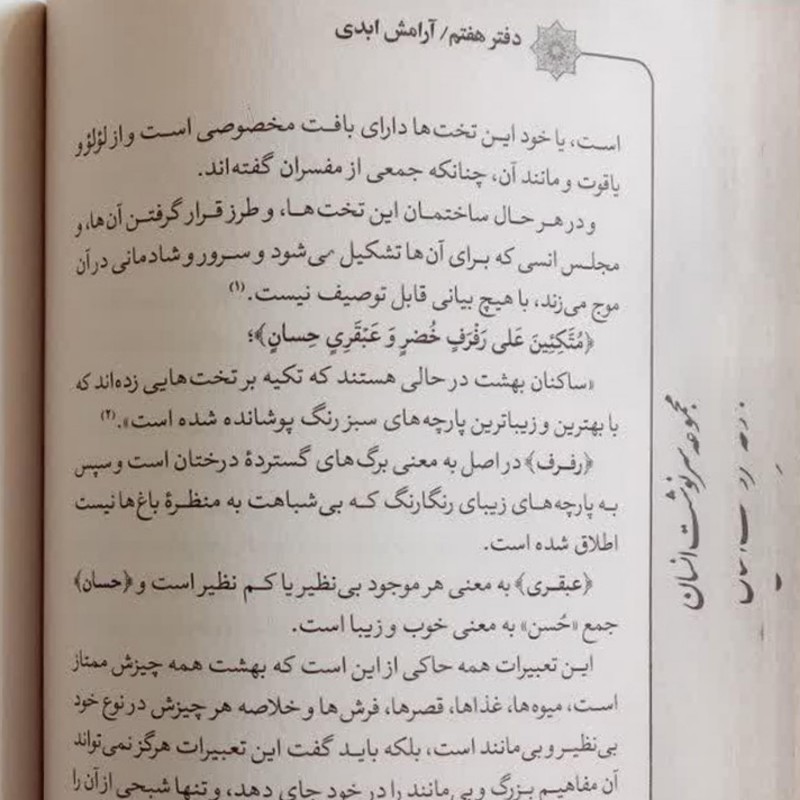 دفتر هفتم/ آرامش ابدی
است، یا خود این تخت‌ها دارای بافت مخصوصی است و از لؤلؤ و
یاقوت و مانند آن، چنانکه جمعی از مفسران گفته‌اند.
و در هر حال ساختمان این تخت‌ها، و طرز قرار گرفتن آن‌ها، و
مجلس انسی که برای آن‌ها تشکیل می‌شود و سرور و شادمانی در آن
موج می‌زند، با هیچ بیانی قابل توصیف نیست.(۱)
﴿مُتَّكِئِينَ عَلى رَفْرَفٍ خُضرٍ وَ عَبْقَرِيٍ حِسانٍ﴾؛
«ساکنان بهشت در حالی هستند که تکیه بر تخت‌هایی زده‌اند که
با بهترین و زیباترین پارچه‌های سبز رنگ پوشانده شده است».(۲)
﴿رفرف﴾ در اصل به معنی برگ‌های گستردۀ درختان است و سپس
به پارچه‌های زیبای رنگارنگ که بی‌شباهت به منظرۀ باغ‌ها نیست
اطلاق شده است.
﴿عبقری﴾ به معنی هر موجود بی‌نظیر یا کم نظیر است و ﴿حسان﴾
جمع «حُسن» به معنی خوب و زیبا است.
این تعبیرات همه حاکی از این است که بهشت همه چیزش ممتاز
است، میوه‌ها، غذاها، قصرها، فرش‌ها و خلاصه هر چیزش در نوع خود
بی‌نظیر و بی‌مانند است، بلکه باید گفت این تعبیرات هرگز نمی‌تواند
آن مفاهیم بزرگ و بی‌مانند را در خود جای دهد، و تنها شبحی از آن را
مجموعه سرنوشت انسان